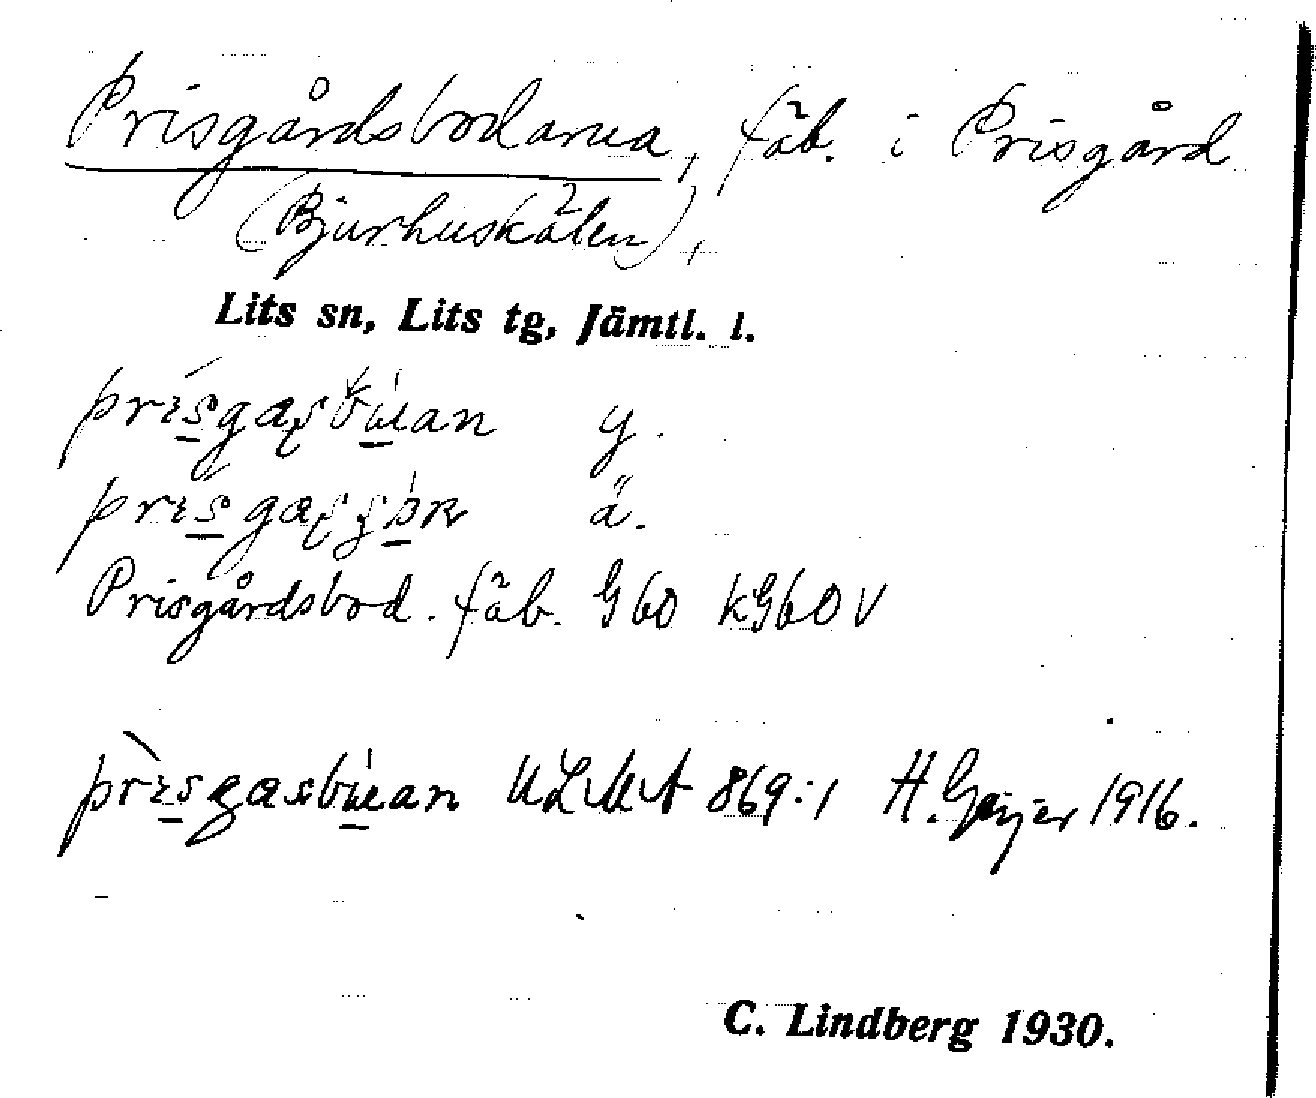 Prisgårdsbodarna, fäb. i Prisgård
(Bjurhuskälen),
Lits sn, Lits tg, Jämtl. l.
y.
ä.
Prisgårdsbod. fäb. G60 kG60V
ULMA 869:1 H. Geijer 1916.
C. Lindberg 1930.